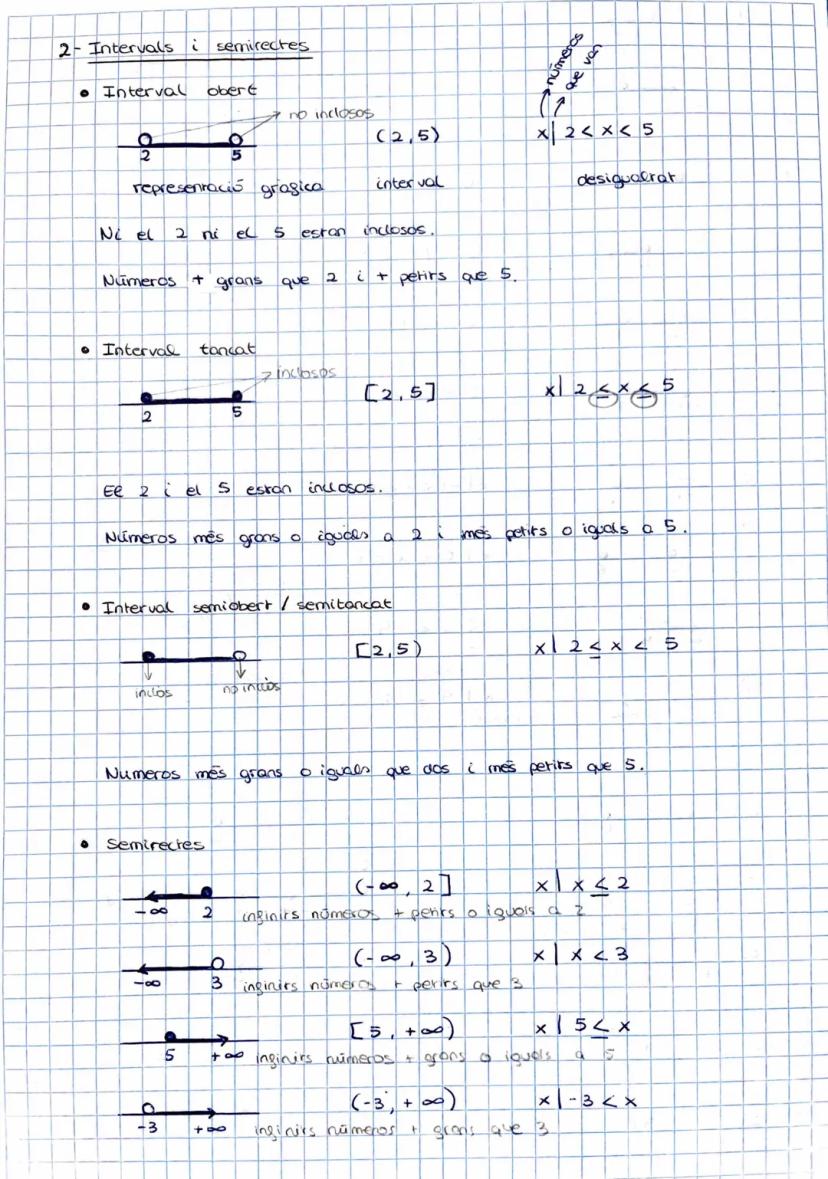 2- Intervals i semirectes
números
que van
• Interval obert
no inclosos
2 5 (2,5) x| 2 < x < 5
representació gràfica interval desigualtat
Ni el 2 ni el 5 estan inclosos.
Números + grans que 2 i + petits que 5.
• Interval tancat
inclosos
2 5 [2,5] x| 2 ≤ x ≤ 5
El 2 i el 5 estan inclosos.
Números més grans o iguals a 2 i més petits o iguals a 5.
• Interval semiobert / semitancat
[2,5) x| 2 ≤ x < 5
inclòs no inclòs
Numeros més grans o iguals que dos i més petits que 5.
• Semirectes
(-∞, 2] x| x ≤ 2
-∞ 2 infinits números + petits o iguals a 2
(-∞, 3) x| x < 3
-∞ 3 infinits números + petits que 3
[5, +∞) x| 5 ≤ x
5 +∞ infinits números + grans o iguals a 5
(-3, +∞) x| -3 < x
-3 +∞ infinits números + grans que 3